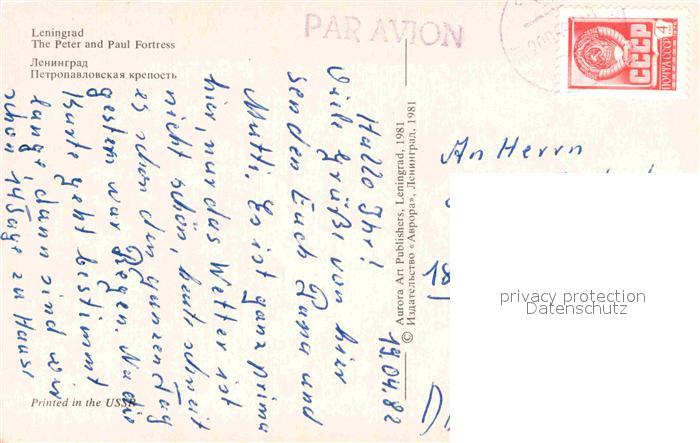 Leningrad
The Peter and Paul Fortress
Ленинград
Петропавловская крепость
PAR AVION
ПОЧТА СССР
СССР
4
19.04.82
Hallo Ihr!
Viele Grüße von hier
senden Euch Papa und
Mutti. Es ist ganz prima
hier, nur das Wetter ist
nicht schön, heute schneit
es schon den ganzen Tag
gestern war Regen. Na die
Karte geht bestimmt
lange, dann sind wir
schon 14 Tage zu Hause
Printed in the USSR
© Aurora Art Publishers, Leningrad, 1981
Издательство «Аврора», Ленинград, 1981
An Herrn
18
D
privacy protection
Datenschutz